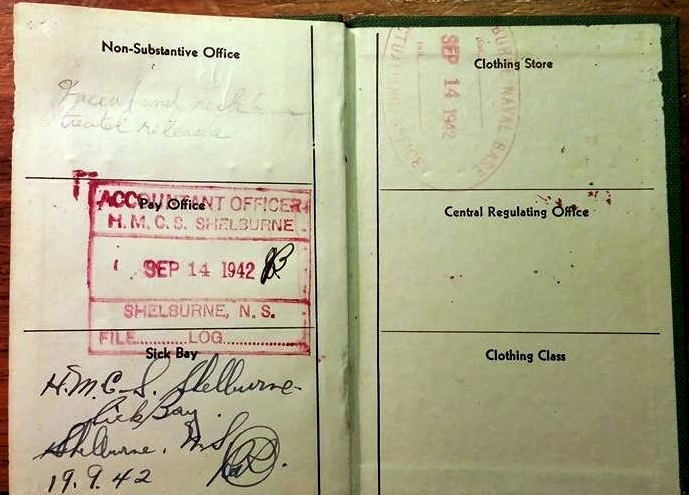 Non-Substantive Office
and neck
treated released
Pay Office
ACCOUNTANT OFFICER
H.M.C.S. SHELBURNE
SEP 14 1942
SHELBURNE, N. S.
FILE..........LOG..............
Sick Bay
H.M.C.S. Shelburne
Sick Bay.
Shelburne. N.S.
19.9.42
Clothing Store
NAVAL BASE
SEP 14 1942
OFFICE
Central Regulating Office
Clothing Class